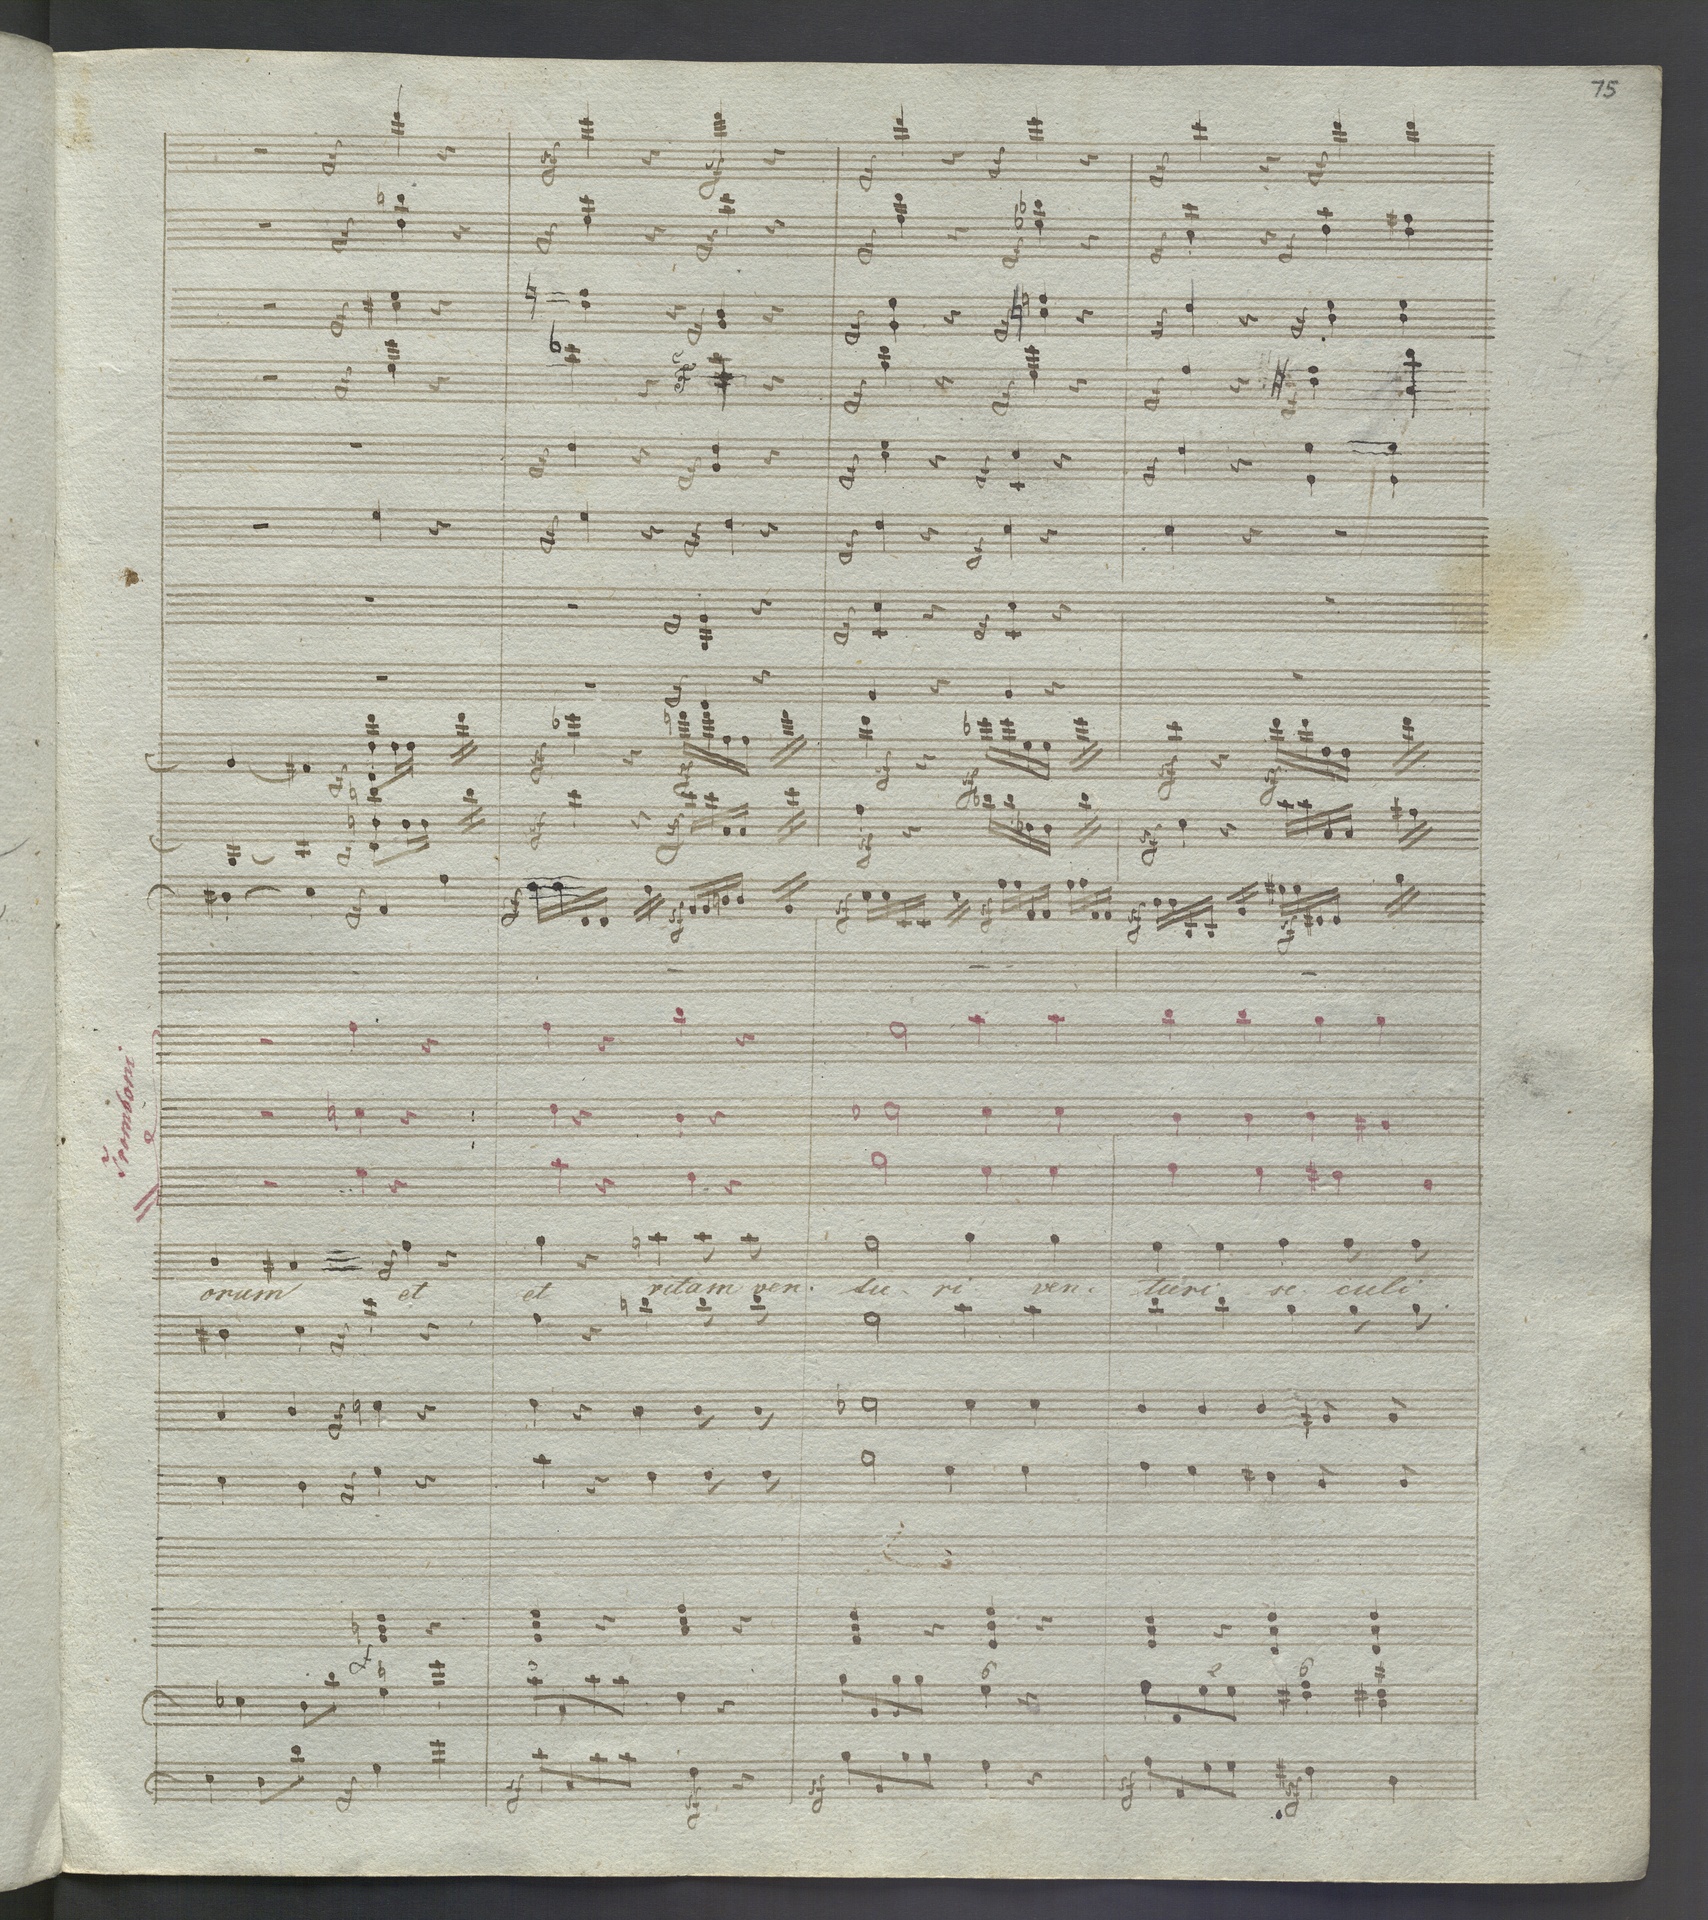 75
Tromboni
orum et et vitam ven. tu. ri ven. turi se culi
6 6 2 6